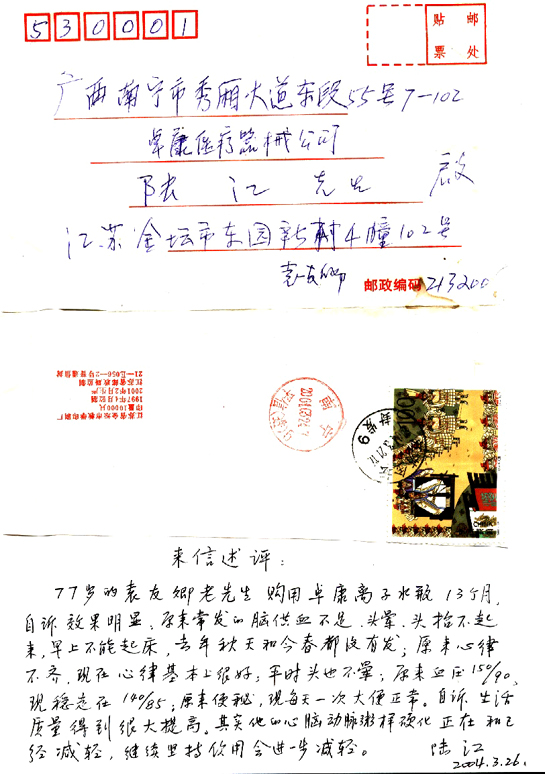 530001
贴 邮
票 处
广西南宁市秀厢大道东段55号7-102
卓康医疗器械公司
陆 江 先生 启
江苏金坛市东园新村4幢102号
袁友卿 邮政编码 213200
江苏省金坛市教学印刷厂
印量10000只
1997年4月监制
2001年2月生产
江苏省邮政局监制
南宁
封发9
来信述评:
77岁的袁友卿老先生购用卓康离子水瓶13个月,
自诉效果明显、原来常发的脑供血不足、头晕、头抬不起
来,早上不能起床,去年秋天和今春都没有发;原来心律
不齐,现在心律基本上很好;平时头也不晕;原来血压150/90,
现稳定在140/85;原来便秘,现每天一次大便正常。自诉生活
质量得到很大提高。其实他的心脑动脉粥样硬化正在和已
经减轻,继续坚持饮用会进一步减轻。 陆江
2004.3.26.